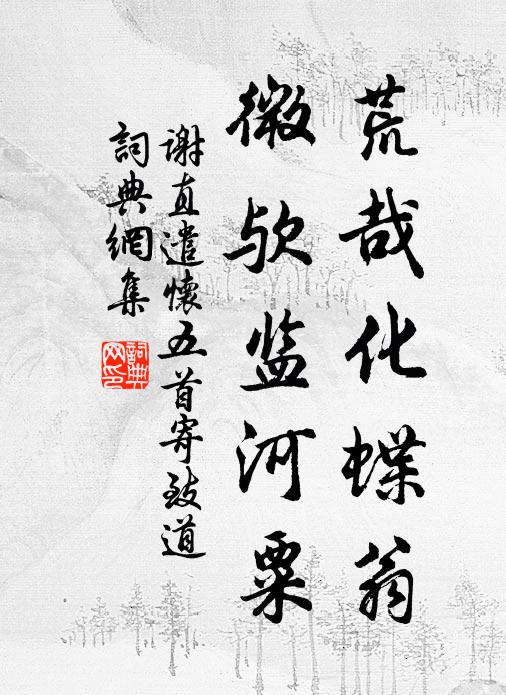 荒哉化蝶翁
微欤监河粟
谢直遣懷五首寄致道
詞典網集
詞典网印